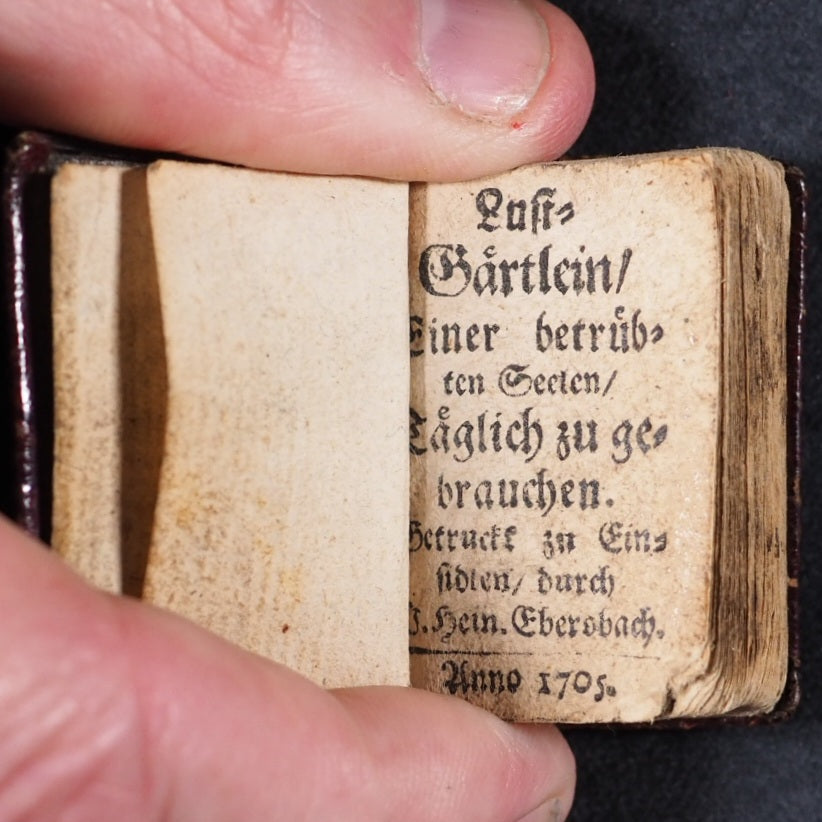 Lust⸗
Gaͤrtlein/
Einer betruͤb⸗
ten Seelen/
Taͤglich zu ge⸗
brauchen.
Getruckt zu Ein⸗
sidlen/ durch
J. Hein. Ebersbach.
Anno 1705.